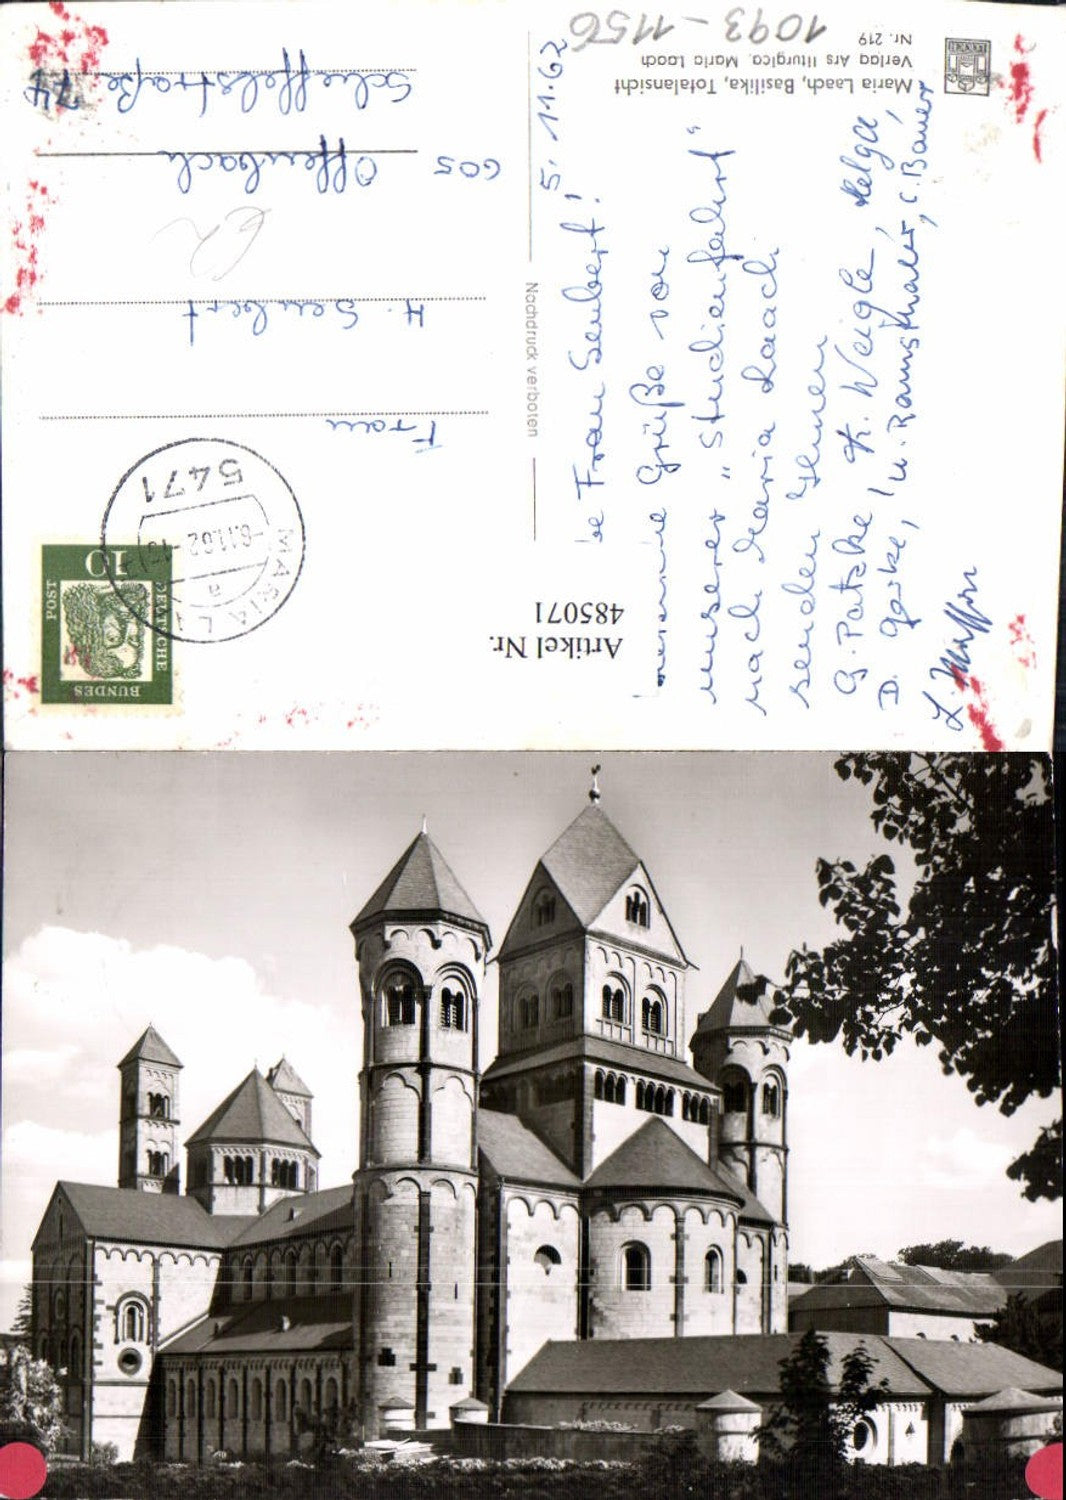 Maria Laach, Basilika, Totalansicht
Verlag Ars liturgica, Maria Laach
Nr. 219
1093-1156
5. 11. 62
be Frau Seubert!
Grüße von
unserer „Studienfahrt“
nach Maria Laach
senden Ihnen
G. Patzke K. Weigle, Helga,
D. Gerke,
C. Bauer
Nachdruck verboten
DEUTSCHE
BUNDES
POST
10
5471
MARIA L
-6.11.62-13
a
Frau
H. Seubert
605 Offenbach
Scheffelstraße 74
Artikel Nr.
485071